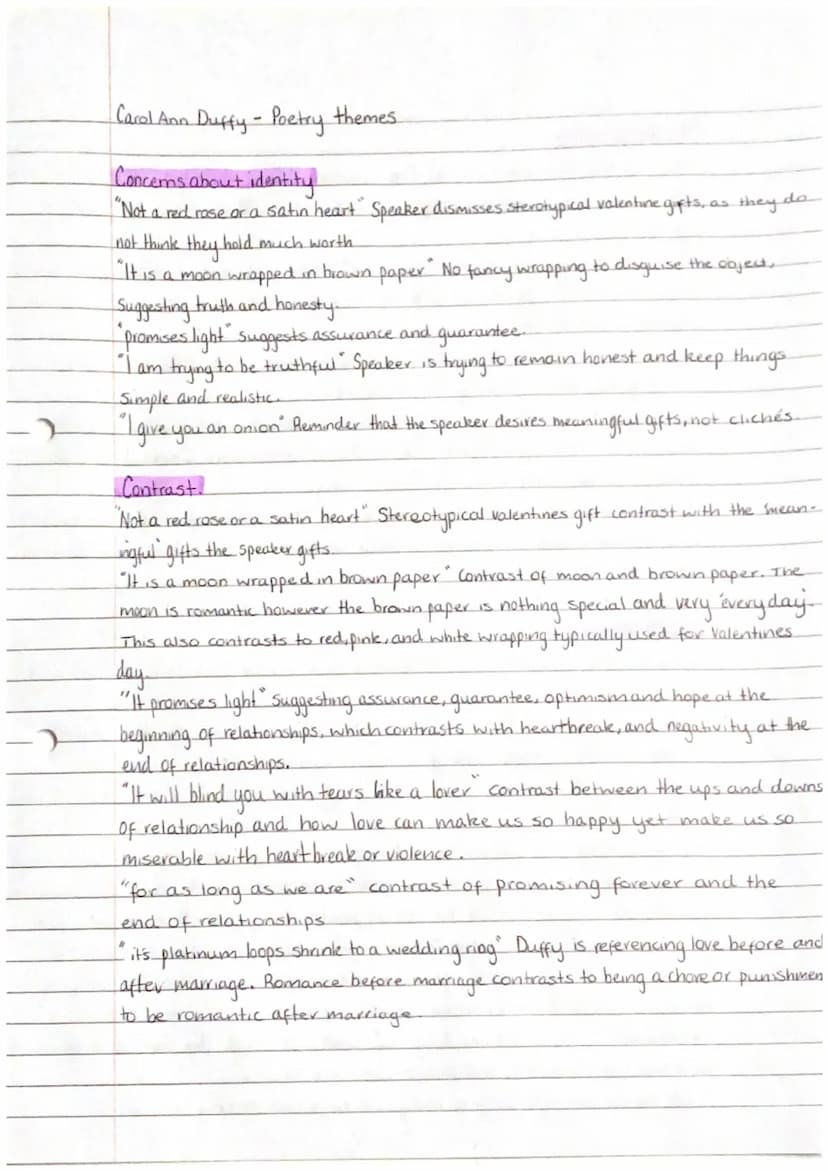 Carol Ann Duffy - Poetry themes
Concerns about identity
"Not a red rose or a satin heart" Speaker dismisses sterotypical valentine gifts, as they do
not think they hold much worth
"It is a moon wrapped in brown paper" No fancy wrapping to disguise the object,
Suggesting truth and honesty.
"promises light" suggests assurance and guarantee.
"I am trying to be truthful" Speaker is trying to remain honest and keep things
simple and realistic.
"I give you an onion" Reminder that the speaker desires meaningful gifts, not clichés.
Contrast.
"Not a red rose or a satin heart" Stereotypical valentines gift contrast with the 'mean-
ingful' gifts the speaker gifts.
"It is a moon wrapped in brown paper" Contrast of moon and brown paper. The
moon is romantic however the brown paper is nothing special and very 'everyday'.
This also contrasts to red, pink, and white wrapping typically used for Valentines
day.
"It promises light" Suggesting assurance, guarantee, optimism and hope at the
beginning of relationships, which contrasts with heartbreak, and negativity at the
end of relationships.
"It will blind you with tears like a lover" contrast between the ups and downs
of relationship and how love can make us so happy yet make us so
miserable with heartbreak or violence.
"for as long as we are" contrast of promising forever and the
end of relationships
"it's platinum loops shrink to a wedding ring" Duffy is referencing love before and
after marriage. Romance before marriage contrasts to being a chore or punishmen
to be romantic after marriage.